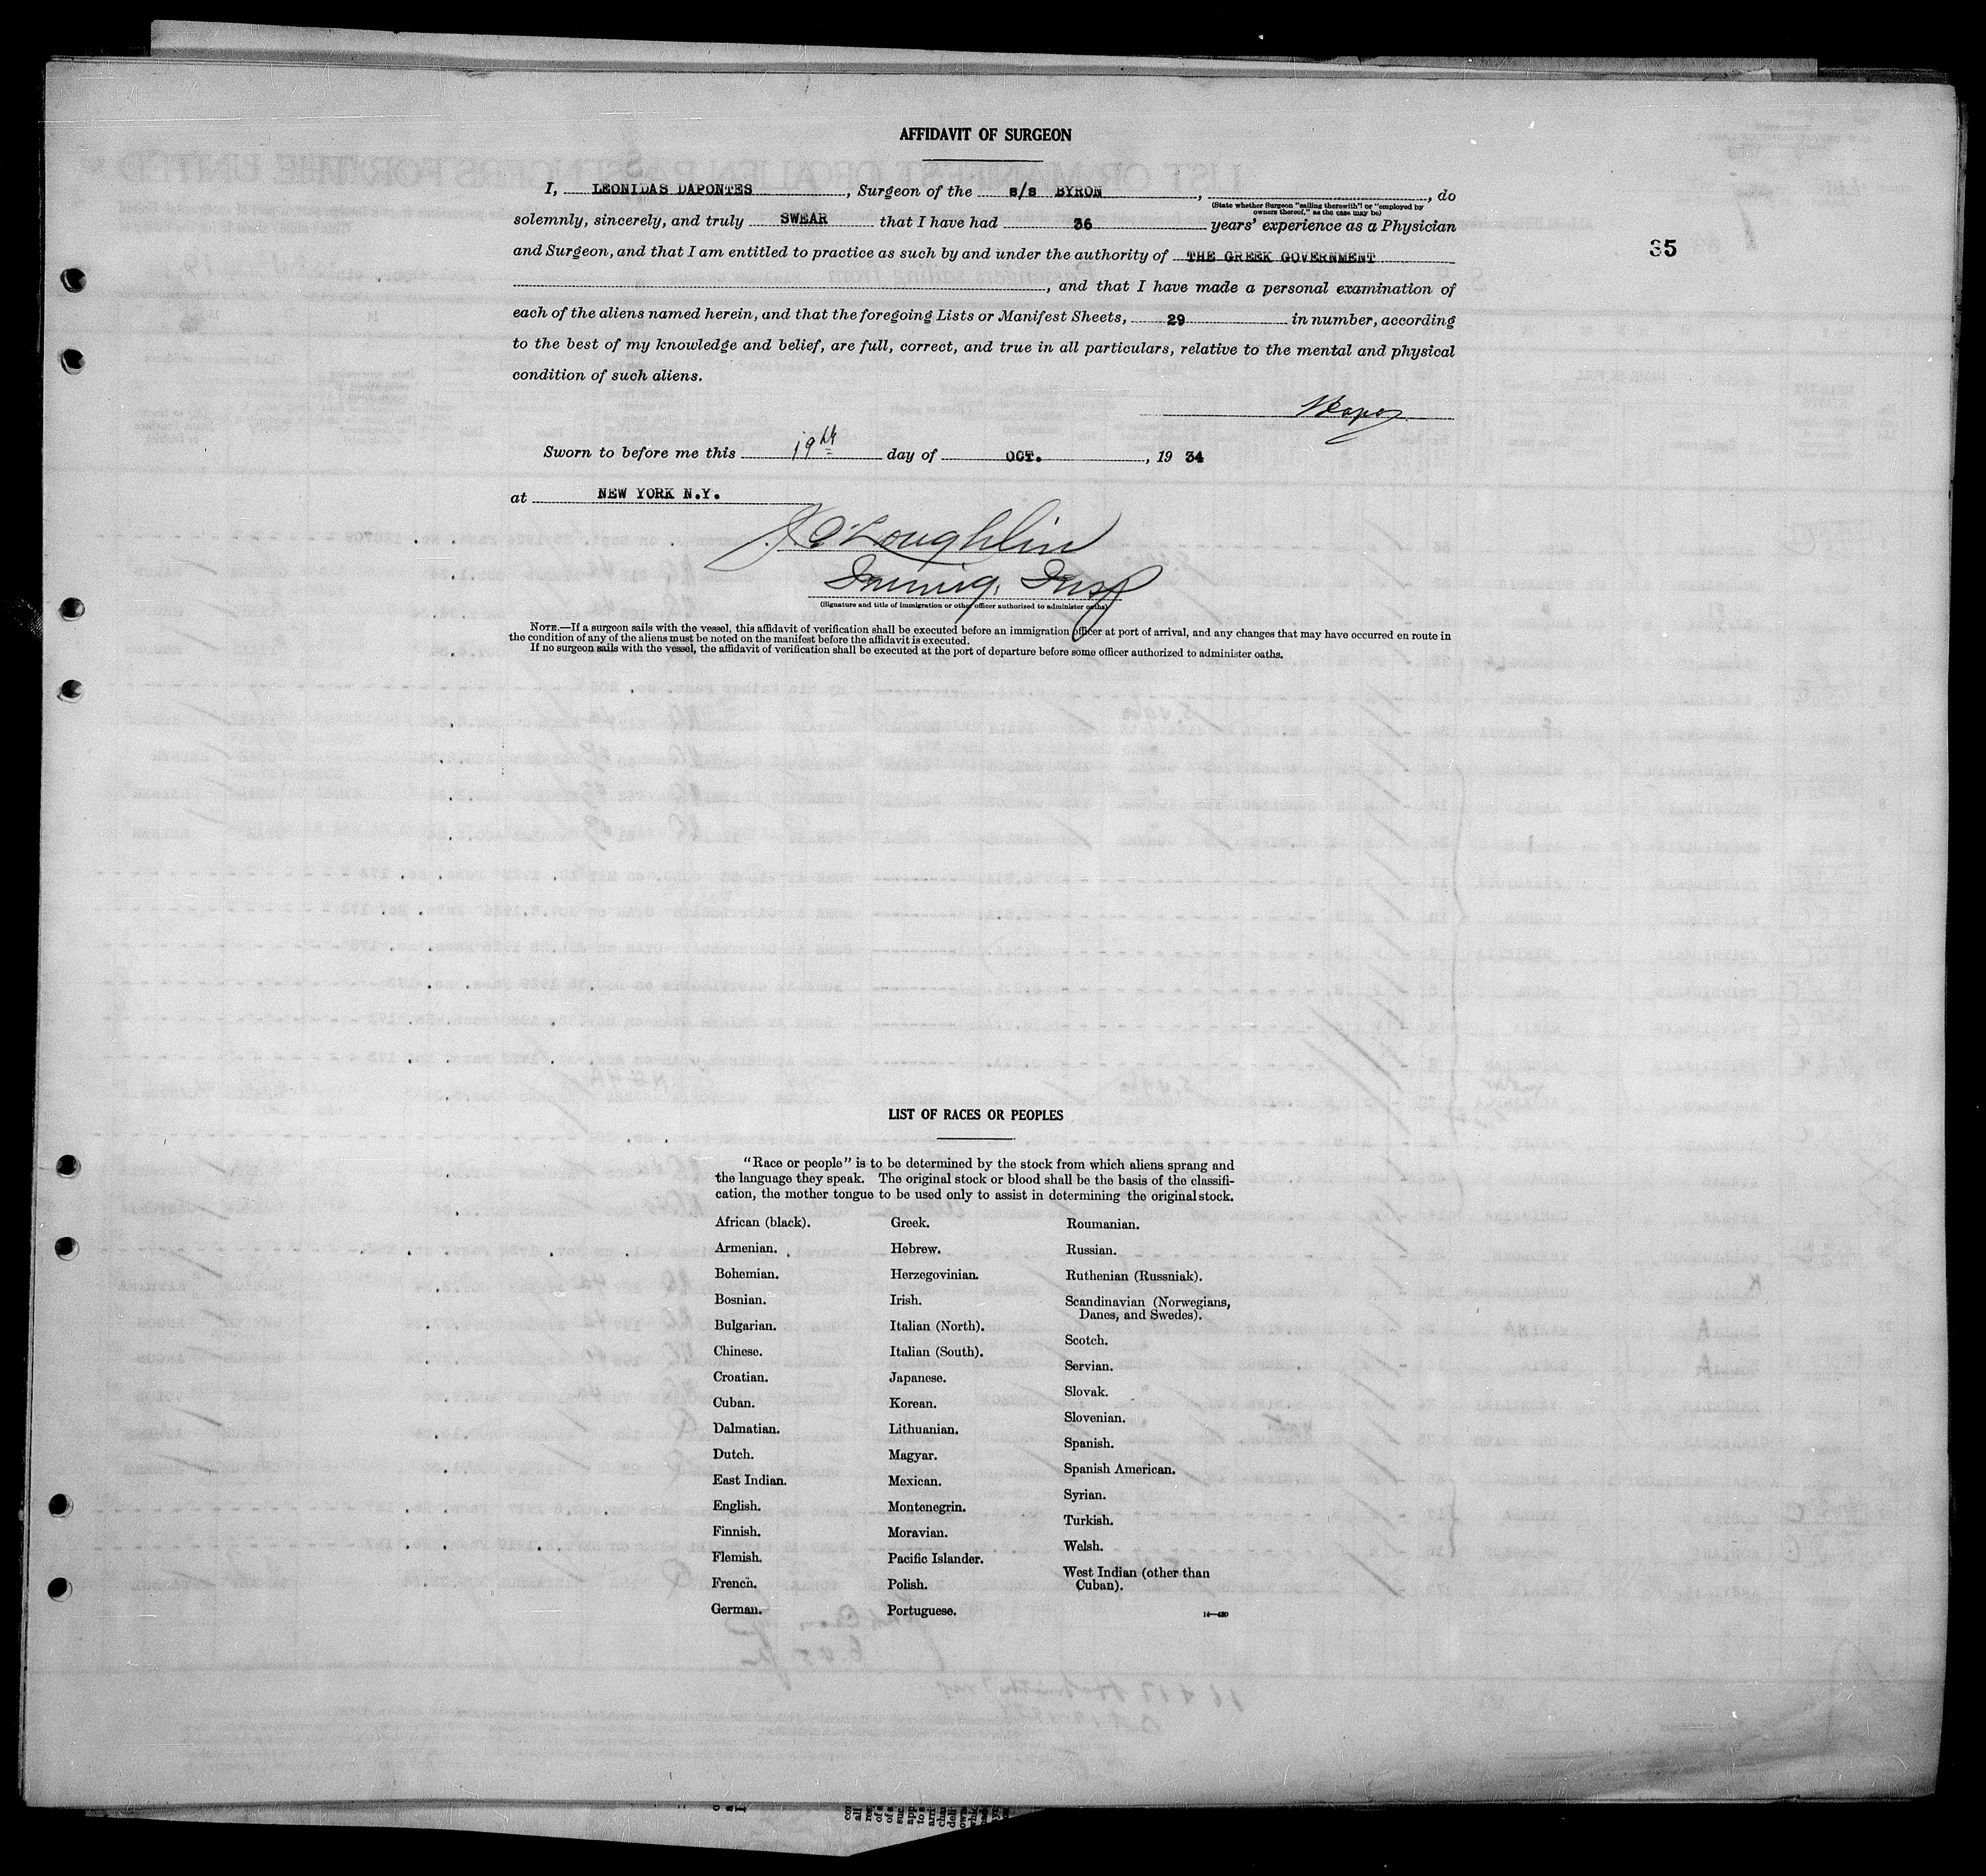 AFFIDAVIT OF SURGEON
I, LEONIDAS DAPONTES, Surgeon of the s/s BYRON, , do
(State whether Surgeon "sailing therewith" or "employed by
owners thereof," as the case may be)
solemnly, sincerely, and truly SWEAR that I have had 36 years' experience as a Physician
and Surgeon, and that I am entitled to practice as such by and under the authority of THE GREEK GOVERNMENT
35
, and that I have made a personal examination of
each of the aliens named herein, and that the foregoing Lists or Manifest Sheets, 29 in number, according
to the best of my knowledge and belief, are full, correct, and true in all particulars, relative to the mental and physical
condition of such aliens.
Sworn to before me this 19th day of OCT., 19 34
at NEW YORK N.Y.
J. O'Loughlin
Immig. Insp
(Signature and title of immigration or other officer authorized to administer oaths)
NOTE.—If a surgeon sails with the vessel, this affidavit of verification shall be executed before an immigration officer at port of arrival, and any changes that may have occurred en route in
the condition of any of the aliens must be noted on the manifest before the affidavit is executed.
If no surgeon sails with the vessel, the affidavit of verification shall be executed at the port of departure before some officer authorized to administer oaths.
LIST OF RACES OR PEOPLES
"Race or people" is to be determined by the stock from which aliens sprang and
the language they speak. The original stock or blood shall be the basis of the classifi-
cation, the mother tongue to be used only to assist in determining the original stock.
African (black).
Armenian.
Bohemian.
Bosnian.
Bulgarian.
Chinese.
Croatian.
Cuban.
Dalmatian.
Dutch.
East Indian.
English.
Finnish.
Flemish.
French.
German.
Greek.
Hebrew.
Herzegovinian.
Irish.
Italian (North).
Italian (South).
Japanese.
Korean.
Lithuanian.
Magyar.
Mexican.
Montenegrin.
Moravian.
Pacific Islander.
Polish.
Portuguese.
Roumanian.
Russian.
Ruthenian (Russniak).
Scandinavian (Norwegians,
Danes, and Swedes).
Scotch.
Servian.
Slovak.
Slovenian.
Spanish.
Spanish American.
Syrian.
Turkish.
Welsh.
West Indian (other than
Cuban).